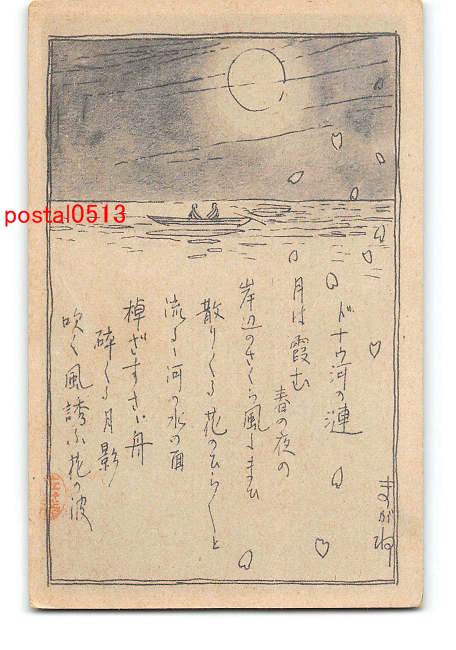 ドナウ河の漣
月は霞む
春の夜の
岸辺のさくら風にまひ
散りくる花のひら〱と
流るゝ河の水の面
棹ざすさい舟
砕くる月影
吹く風誘ふ花の波
postal0513